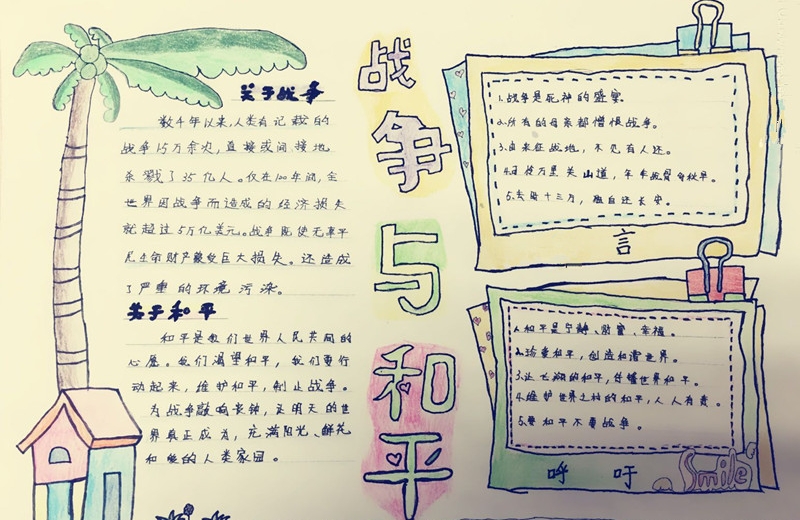 战争与和平
关于战争
数千年以来,人类有记载的
战争15万余次,直接或间接地
杀戮了35亿人。仅在100年间,全
世界因战争而造成的经济损失
就超过5万亿美元。战争既使无辜平
民生命财产蒙受巨大损失。还造成
了严重的环境污染。
关于和平
和平是我们世界人民共同的
心愿。我们渴望和平,我们要行
动起来,维护和平,制止战争。
为战争敲响丧钟,让明天的世
界真正成为,充满阳光、鲜花
和爱的人类家园。
1.战争是死神的盛宴。
2.所有的母亲都憎恨战争。
3.由来征战地,不见有人还。
4.万里关山道,年年战骨多秋草。
5.去时十三万,独自还长安。
言
1.和平是宁静、财富、幸福。
2.珍重和平,创造和谐世界。
3.让和平,世界和平。
4.维护世界之村的和平,人人有责。
5.要和平不要战争。
呼吁
Smile